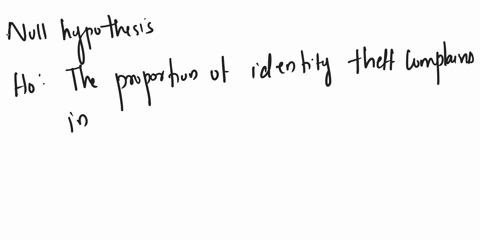 Null hypothesis
Ho: The proportion of identity theft Complains
in